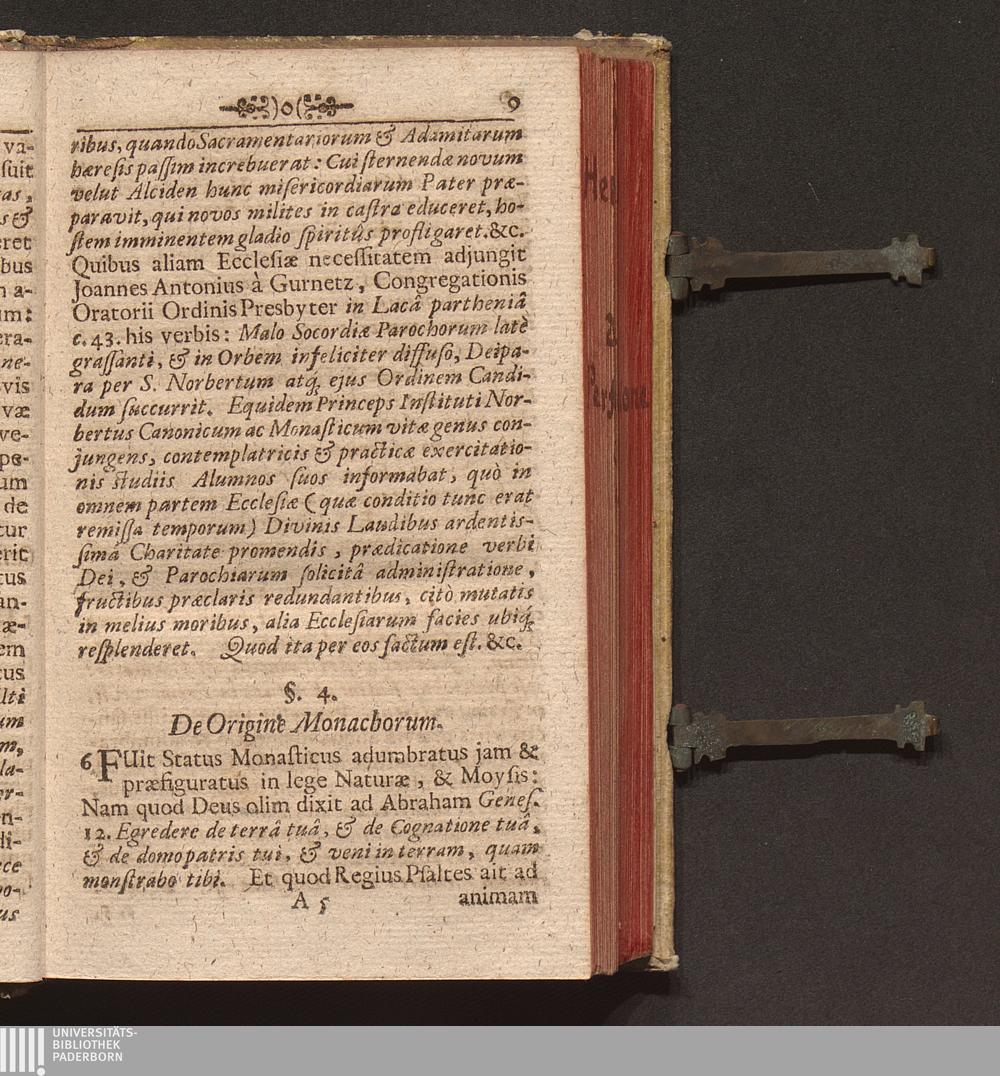 )o( 9
ribus, quando Sacramentariorum & Adamitarum
hæresis passim increbuerat: Cui sternendæ novum
velut Alciden hunc misericordiarum Pater præ-
paravit, qui novos milites in castra educeret, ho-
stem imminentem gladio spiritûs profligaret. &c.
Quibus aliam Ecclesiæ necessitatem adjungit
Joannes Antonius à Gurnetz, Congregationis
Oratorii Ordinis Presbyter in Lacâ partheniâ
c. 43. his verbis: Malo Socordiæ Parochorum latè
grassanti, & in Orbem infeliciter diffuso, Deipa-
ra per S. Norbertum atq́; ejus Ordinem Candi-
dum succurrit. Equidem Princeps Instituti Nor-
bertus Canonicum ac Monasticum vitæ genus con-
jungens, contemplatricis & practicæ exercitatio-
nis studiis Alumnos suos informabat, quò in
omnem partem Ecclesiæ (quæ conditio tunc erat
remissa temporum) Divinis Laudibus ardentis-
simâ Charitate promendis, prædicatione verbi
Dei, & Parochiarum solicitâ administratione,
fructibus præclaris redundantibus, citò mutatis
in melius moribus, alia Ecclesiarum facies ubiq́;
resplenderet. Quod ita per eos factum est. &c.
§. 4.
De Origine Monachorum.
6 FUit Status Monasticus adumbratus jam &
præfiguratus in lege Naturæ, & Moysis:
Nam quod Deus olim dixit ad Abraham Genes.
12. Egredere de terrâ tuâ, & de Cognatione tuâ,
& de domo patris tui, & veni in terram, quam
monstrabo tibi. Et quod Regius Psaltes ait ad
A 5 animam
va-
suit
tas,
s &
eret
bus
n a-
um:
era-
ne-
vis
væ
ve-
pe-
um
de
tur
erit
tus
an-
æ-
em
cus
lti
um
m,
la-
er-
n-
di-
ece
oo-
us
à
UNIVERSITÄTS-
BIBLIOTHEK
PADERBORN